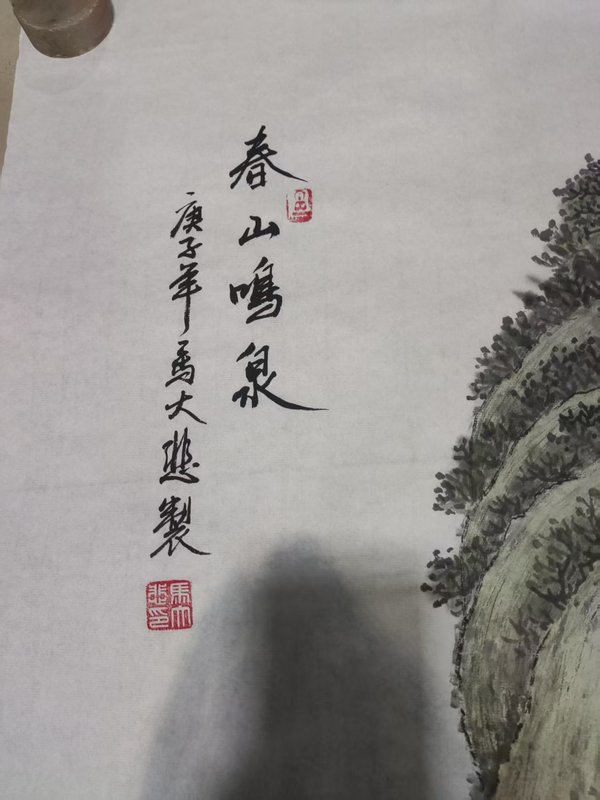 春山鳴泉
庚子年馬大悲製
馬大悲印